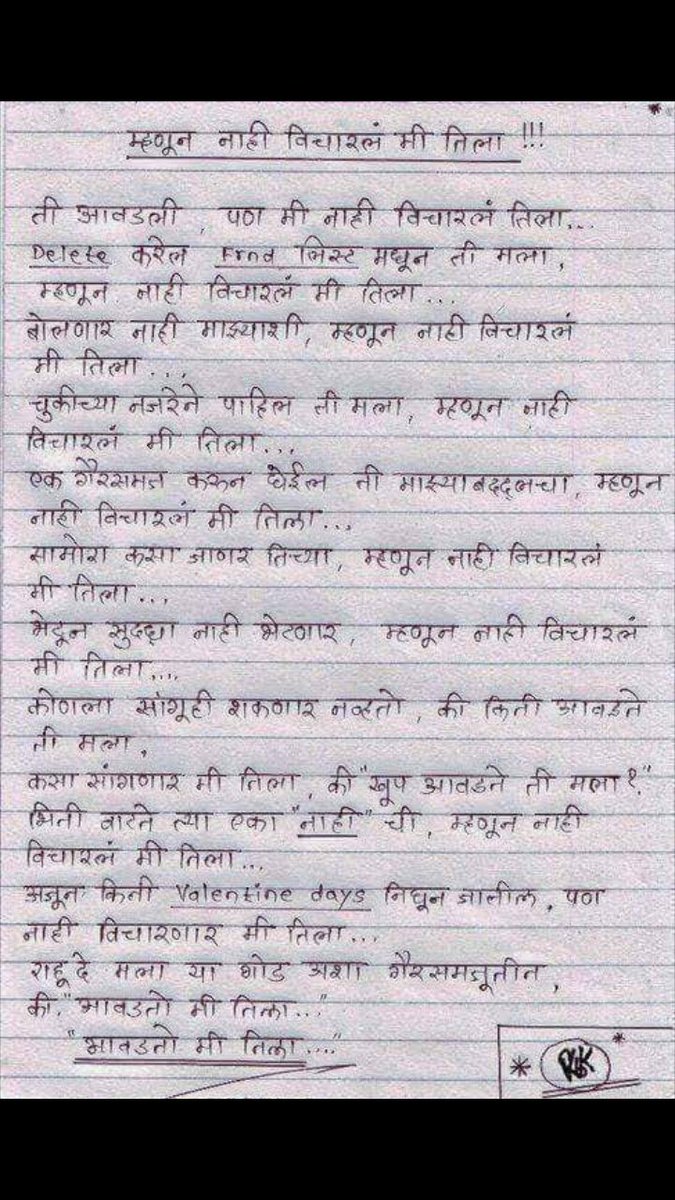 म्हणून नाही विचारलं मी तिला !!!
ती आवडली, पण मी नाही विचारलं तिला...
Delete करेल Frnd लिस्ट मधून ती मला,
म्हणून नाही विचारलं मी तिला...
बोलणार नाही माझ्याशी, म्हणून नाही विचारलं
मी तिला...
चुकीच्या नजरेने पाहिल ती मला, म्हणून नाही
विचारलं मी तिला...
एक गैरसमज करून घेईल ती माझ्याबद्दलचा, म्हणून
नाही विचारलं मी तिला...
सामोरा कसा जाणर तिच्या, म्हणून नाही विचारलं
मी तिला...
भेटून सुद्धा नाही भेटणार, म्हणून नाही विचारलं
मी तिला....
कोणला सांगूही शकणार नव्हतो, की किती आवडते
ती मला,
कसा सांगणार मी तिला, की "खूप आवडते ती मला?"
भिती वाटते त्या एका "नाही" ची, म्हणून नाही
विचारलं मी तिला...
अजून किती Valentine days निघून जातील, पण
नाही विचारणार मी तिला...
राहू दे मला या गोड अशा गैरसमजूतीत,
की. "आवडतो मी तिला..."
"आवडतो मी तिला...."